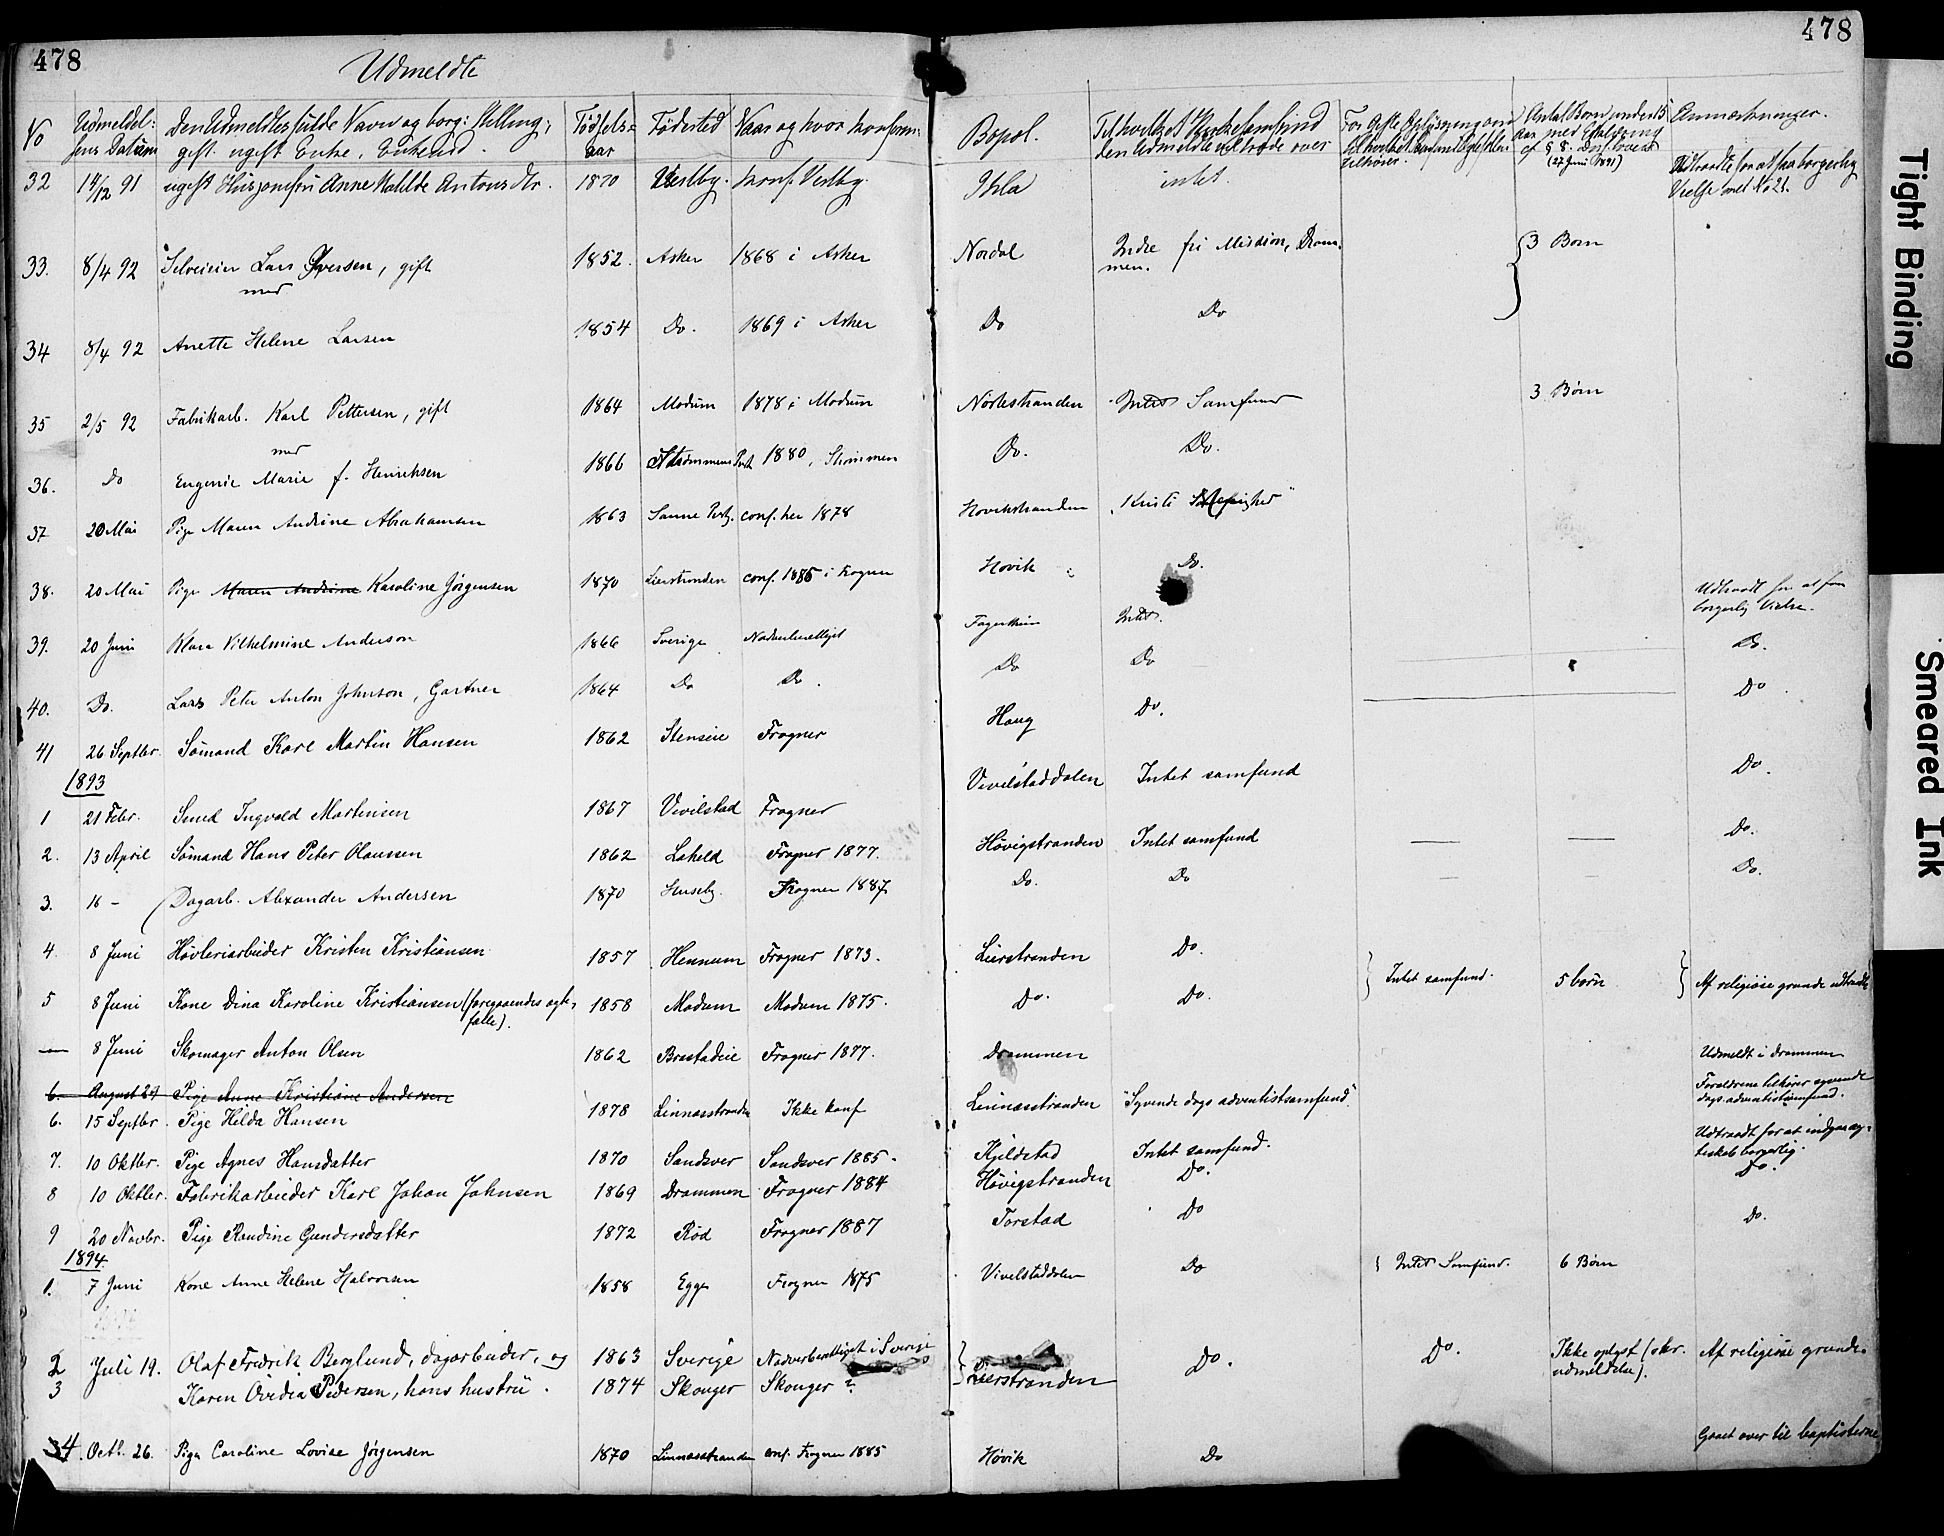 478
478
Udmeldte
No
Udmeldel: sens Datum
Den Udmeldtes fulde Navn og borg: Stilling; gift. ugift Enke. Enkemd.
Fødselsaar
Fødested
Naar og hvor konfirm:
Bopæl.
Til hvilket Kirkesamfund den Udmeldte er traadt over
Antal Børn under 15 Aar med Erklæring af § 8. Diss. loven (27 Juni 1891)
Anmærkninger.
32 14/12 91 ugift Husjomfru Anne Matilde Antonsdtr. 1870 Vestby. konf. Vestby. intet. Udtraadte for at faa borgerlig Vielse med No 21.
33. 8/4 92 Selveier Lars Iversen, gift 1852. Asker 1868 i Asker Nordal Indre fri Mission, Drammen. 3 Born
med
34 8/4 92 Anette Helene Larsen 1854 Do. 1869 i Asker Do Do
35 2/5 92 Fabrikarb. Karl Pettersen, gift 1864 Modum 1878 i Modum Nøstestranden Intet Samfund 3 Børn
med
36. Do Eugenie Marie f. Henriksen 1866 1880, Strømmen Do. Do.
37 20 Mai Pige Maren Andrine Abrahamsen 1863 Sanne conf. her 1878 Hovikstranden "Kristi Menighed"
38. 20 Mai Pige Maren Andrine Karoline Jørgensen 1870 Lierstranden conf. 1885 i Frogner Hovik Do.
39. 20 Juni Klara Vilhelmine Anderson 1866 Sverige Nadverberettiget Fagerheim Intet. Udtraadt for at faa borgerlig Vielse.
40. Do. Lars Peter Anton Johnson, Gartner 1864 Do Do. Do Do Do.
41 26 Septbr. Sømand Karl Martin Hansen 1862 Stenseie Frogner Haug Do. Do
1893
1 21 Febr. Smed Ingvald Martinsen 1867 Vivilstad Frogner Vivilstaddalen Intet samfund Do.
2. 13 April Sømand Hans Peter Olaussen 1862 Laheld Frogner 1877. Høvigstranden Intet samfund — — Do.
3. 16 — Dagarb. Alexander Andersen 1870 Huseby Frogner 1887. Do. Do — — Do.
4. 8 Juni Høvleriarbeider Kristen Kristiansen 1857 Hennum Frogner 1873. Lierstranden Do.
5 8 Juni Kone Dina Karoline Kristiansen (foregaaendes ægtefælle). 1858 Modum Modum 1875. Do. Do. Intet samfund. 5 børn Af religiøse grunde udtraadt
— 8 Juni Skomager Anton Olsen 1862 Brastadeie Frogner 1877. Drammen Udmeldt i Drammen
6. August 29 Pige Anne Kristiane Andersen
6. 15 Septbr. Pige Hilda Hansen 1878 Linnesstranden Ikke konf Linnesstranden "Syvende dags adventistsamfund". Forældrene tilhører syvende dags adventistsamfund.
7. 10 Oktbr. Pige Agnes Hansdatter 1870 Sandsver Sandsver 1885. Kjeldstad Intet samfund. Udtraadt for at indgaa ægteskab borgerlig.
8 10 Oktbr. Fabrikarbeider Karl Johan Johnsen 1869 Drammen Frogner 1884 Høvigstranden Do. Do.
9 20 Novbr. Pige Randine Gundersdatter 1872 Rød Frogner 1887 Torstad Do Do.
1894
1. 7 Juni Kone Anne Helene Halvorsen 1858 Egge Frogner 1875 Vivelstaddalen Do Intet Samfund. 6 Børn
2 Juli 19. Olaf Fredrik Berglund, dagarbeider, og 1863 Sverige Nadverberettiget i Sverige Do. Do. Ikke oplyst (skr. udmeldelse). Af religiøse grunde.
3 Karen Ovidia Pedersen, hans hustru. 1874 Skouger Skouger ? Lierstranden
4. Octb. 26. Pige Caroline Lovise Jørgensen 1870 Linnesstranden conf. Frogner 1885 Høvik Do Gaaet over til baptisterne
Tight Binding
Smeared Ink